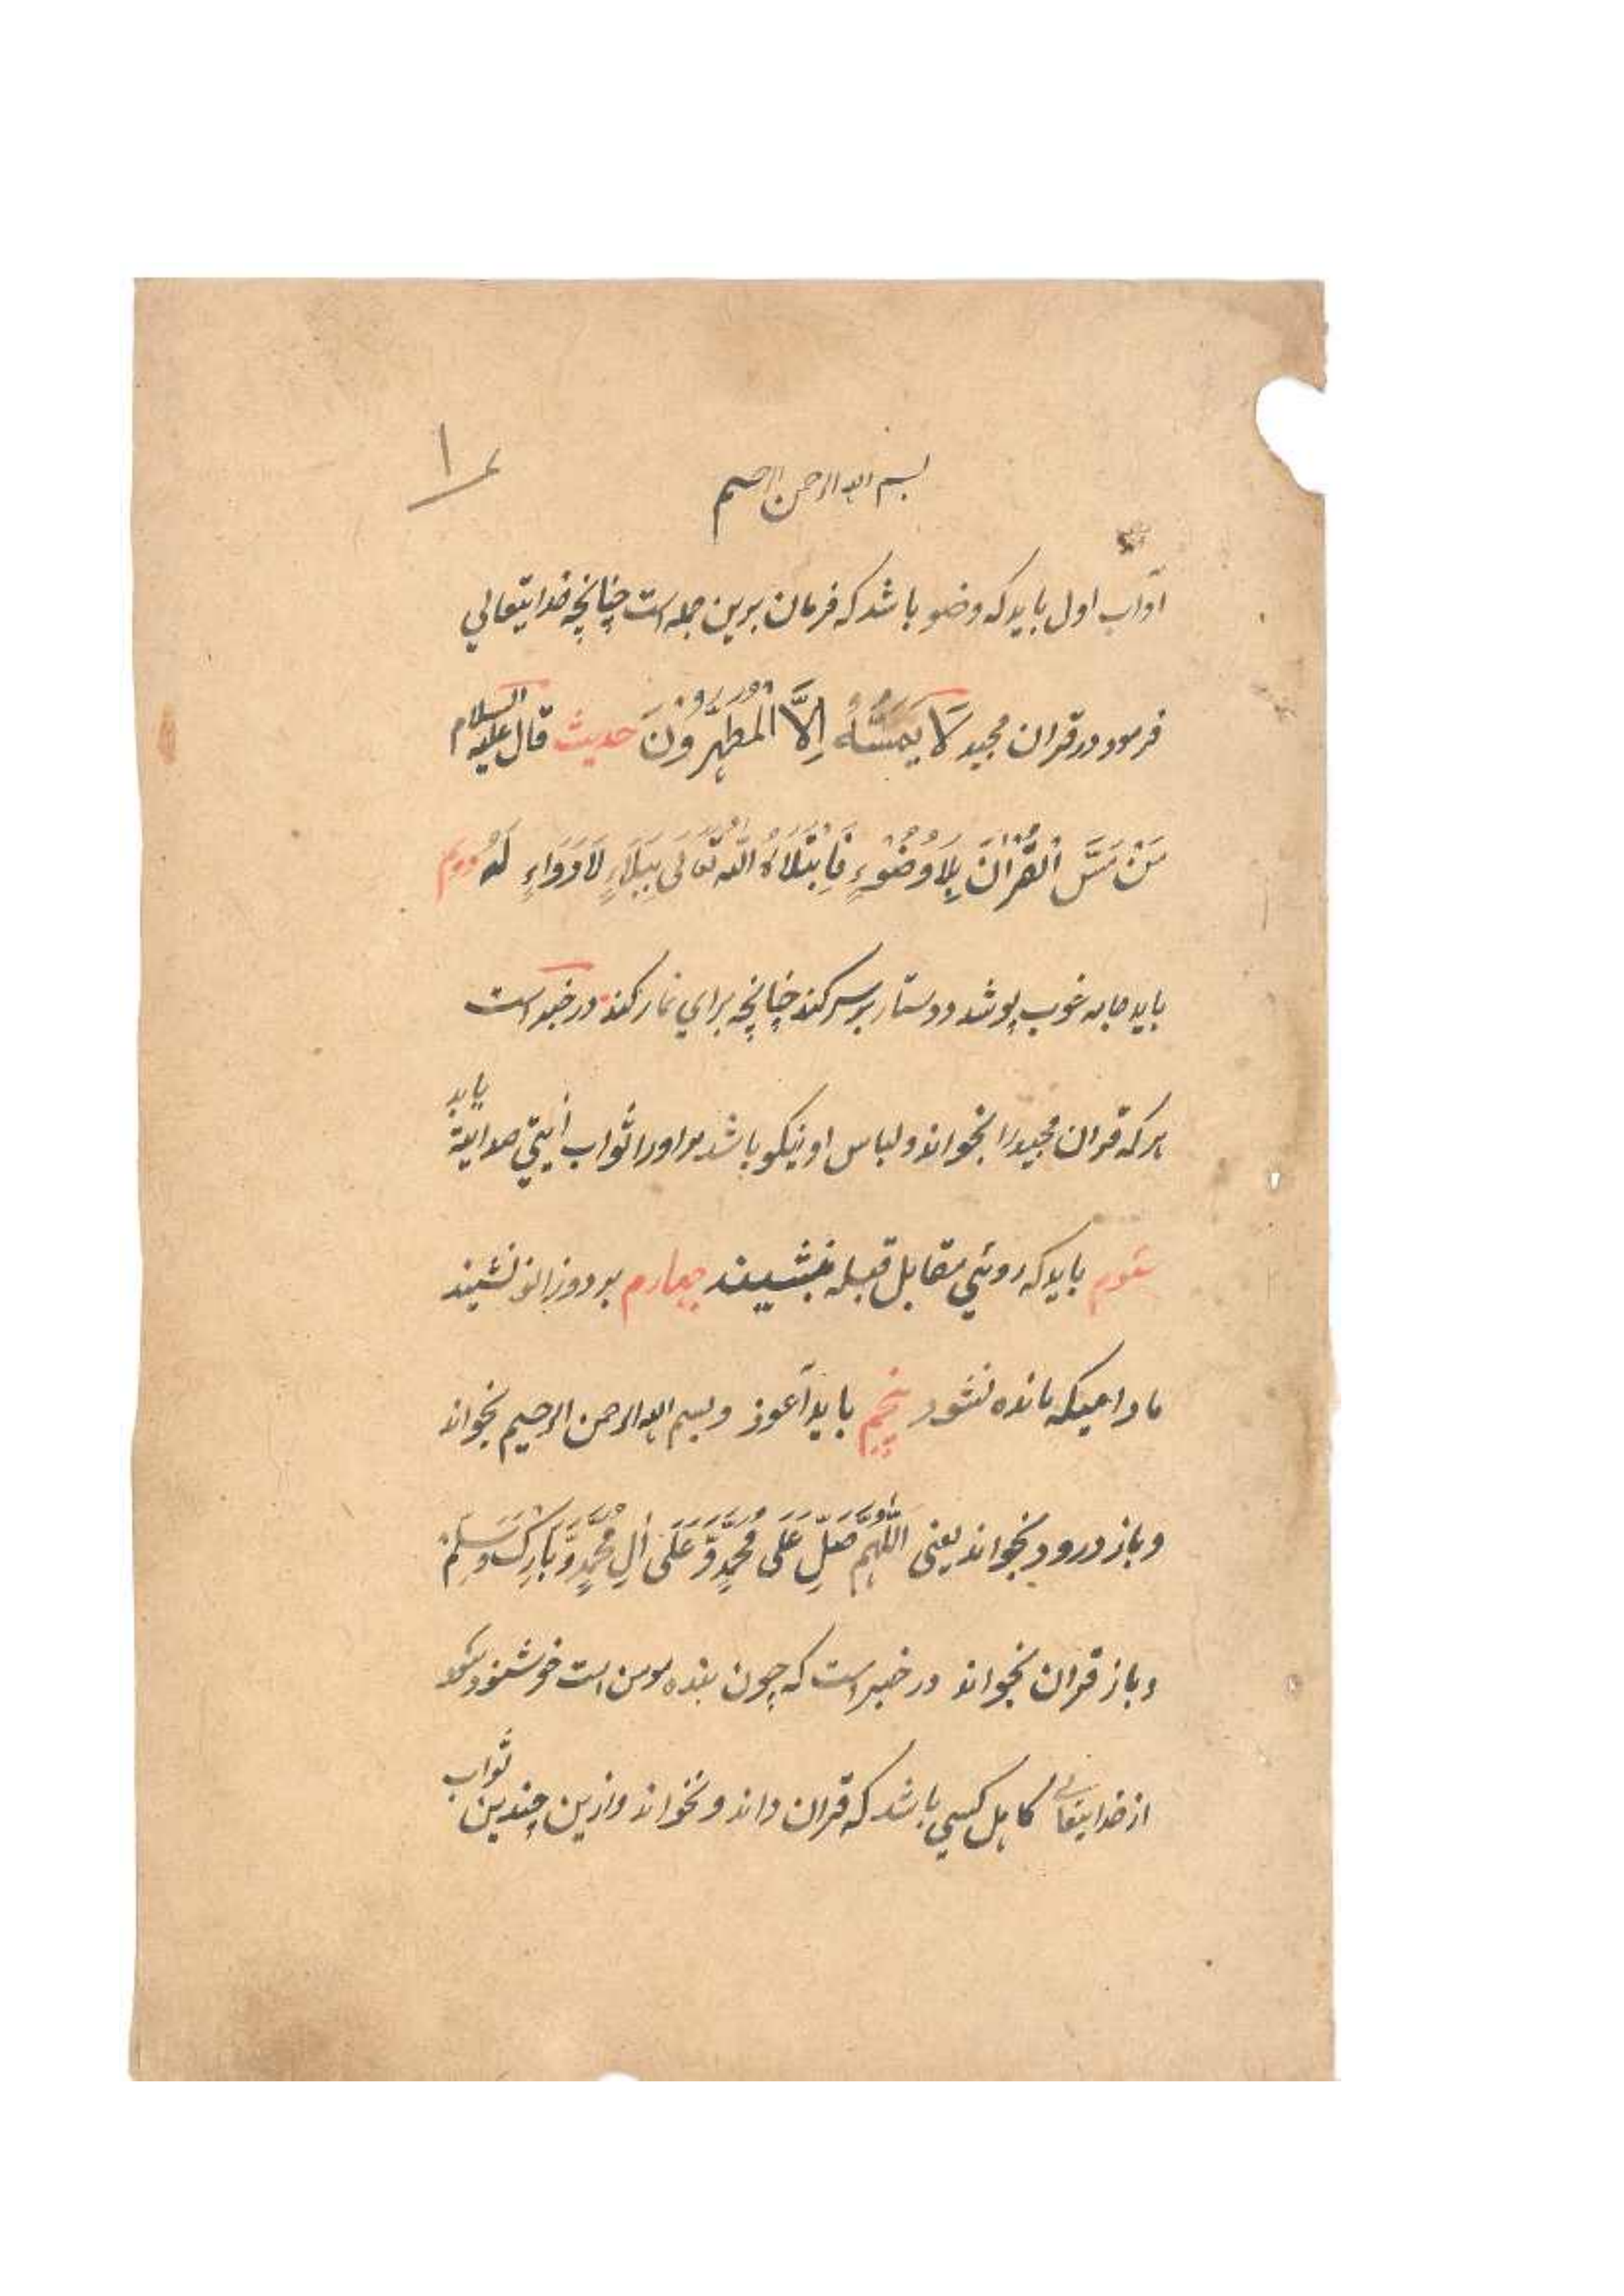 بسم الله الرحمن الرحیم
آداب اول باید که وضو باشد که فرمان برین جمله است چنانچه خدایتعالی
فرمود در قران مجید لَا یَمَسُّهُ اِلَّا الْمُطَهَّرُونَ حدیث قال علیه السلام
مَنْ مَسَّ الْقُرْانَ بِلَا وُضُوْءٍ فَابْتَلَاهُ اللّٰه تَعَالَى بِبَلَاءٍ لَا دَوَاءٍ لَهُ دویم
باید جامه خوب پوشد و دستار بر سر کند چنانچه برای نماز کند در خبر است
هر که قران مجید را بخواند و لباس او نیکو باشد مر او را ثواب آیتی صد آیة یابد
سوم باید که روئی مقابل قبله بنشیند چهارم بر دو زانو نشیند
مادامیکه مانده نشود پنجم باید آعوذ و بسم الله الرحمن الرحیم بخواند
و باز درود بخواند یعنی اَللّٰهُمَّ صَلِّ عَلَى مُحَمَّدٍ وَّعَلَى اٰلِ مُحَمَّدٍ وَّبَارِكْ وَسَلِّمْ
و باز قران بخواند در خبر است که چون بنده مومن است خوشنود شود
از خدایتعالی کاهل کسی باشد که قران داند و نخواند و ازین چندین ثواب